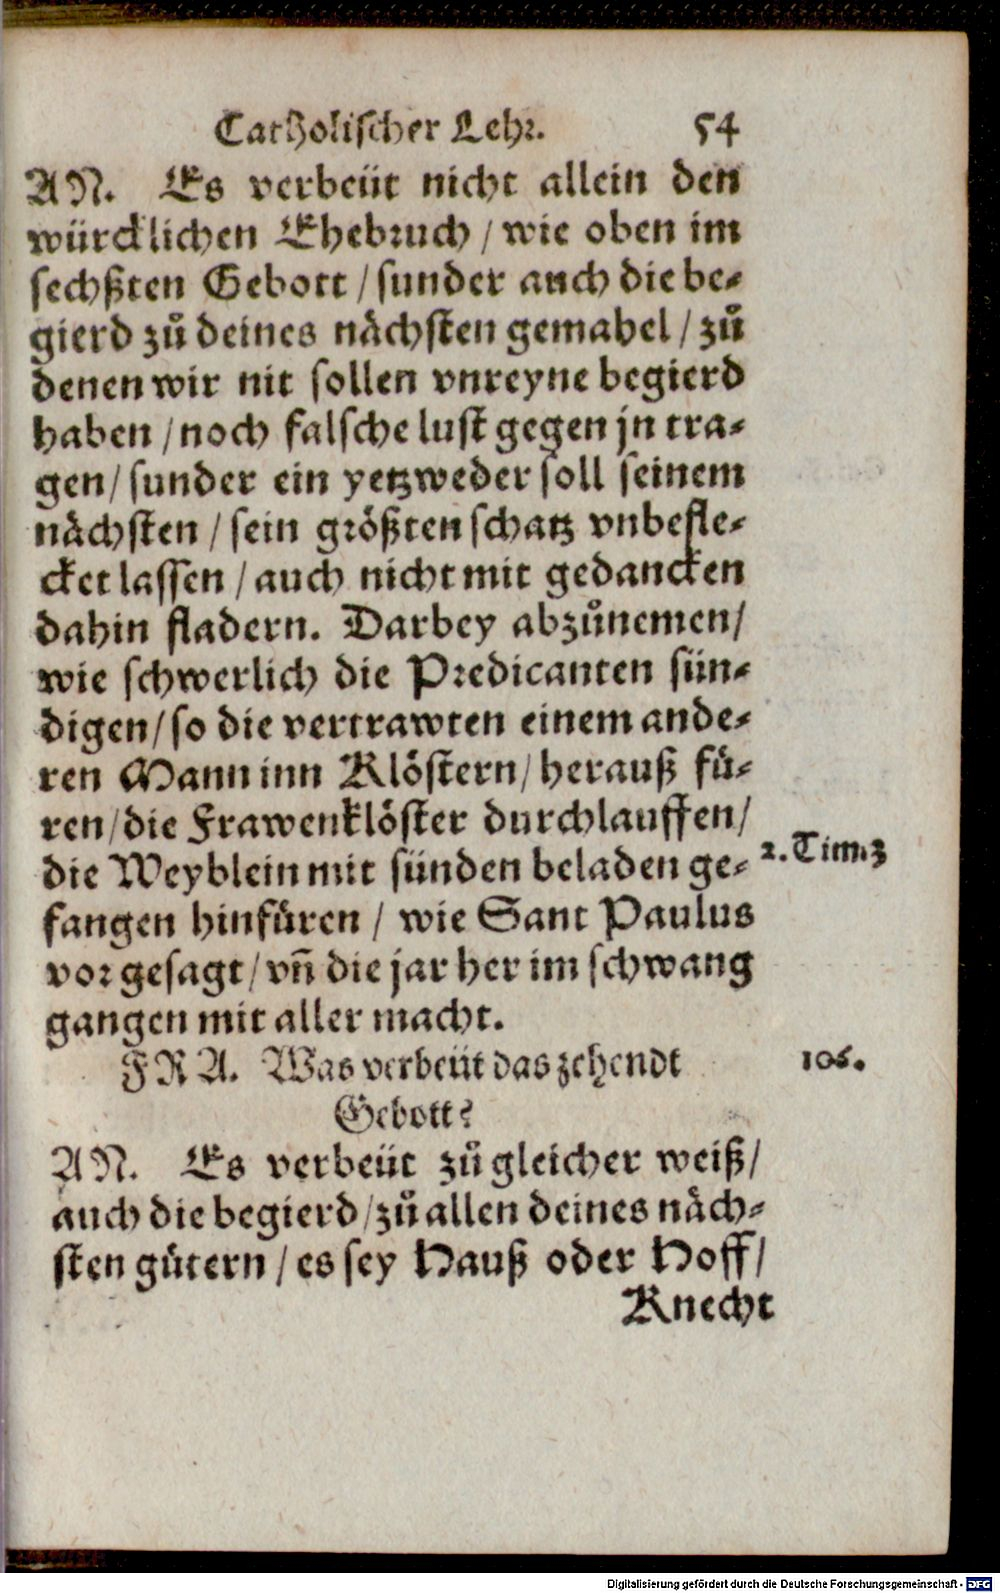 Catholischer Lehr. 54
AN. Es verbeüt nicht allein den
würcklichen Ehebruch / wie oben im
sechßten Gebott / sunder auch die be-
gierd zů deines nächsten gemahel / zů
denen wir nit sollen vnreyne begierd
haben / noch falsche lust gegen jn tra-
gen / sunder ein yetzweder soll seinem
nächsten / sein größten schatz vnbefle-
cket lassen / auch nicht mit gedancken
dahin fladern. Darbey abzůnemen /
wie schwerlich die Predicanten sün-
digen / so die vertrawten einem ande-
ren Mann inn Klöstern / herauß fü-
ren / die Frawenklöster durchlauffen /
die Weyblein mit sünden beladen ge-
2. Tim. 3
fangen hinfüren / wie Sant Paulus
vor gesagt / vñ die jar her im schwang
gangen mit aller macht.
FRA. Was verbeüt das zehendt
106.
Gebott?
AN. Es verbeüt zů gleicher weiß /
auch die begierd / zů allen deines näch-
sten gütern / es sey Hauß oder Hoff /
Knecht
Digitalisierung gefördert durch die Deutsche Forschungsgemeinschaft - DFG